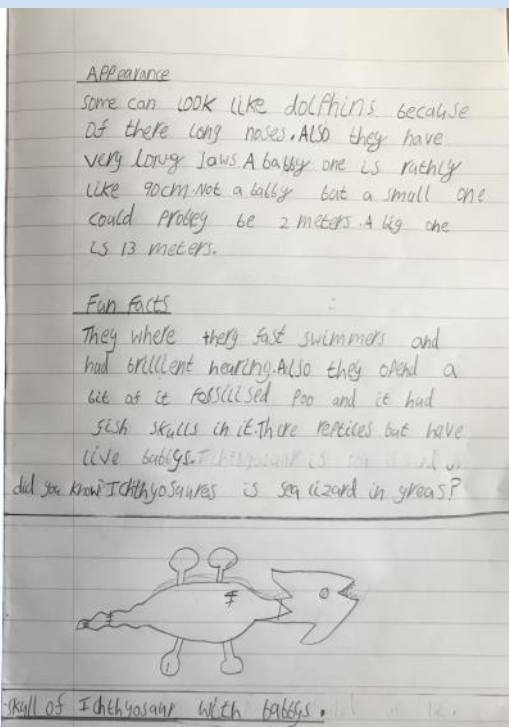 Appearance
some can look like dolphins because
of there long noses. Also they have
very long Jaws A babby one is ruthly
like 90cm. Not a babby but a small one
could probey be 2 meters. A big one
is 13 meters.
Fun facts
They where very fast swimmers and
had brillient hearing. Also they opend a
bit of it fossilised poo and it had
fish skulls in it. There reptiles but have
live babbys.
did you know Ichthyosaures is sea lizard in greas?
skull of Ichthyosaur with babbys.